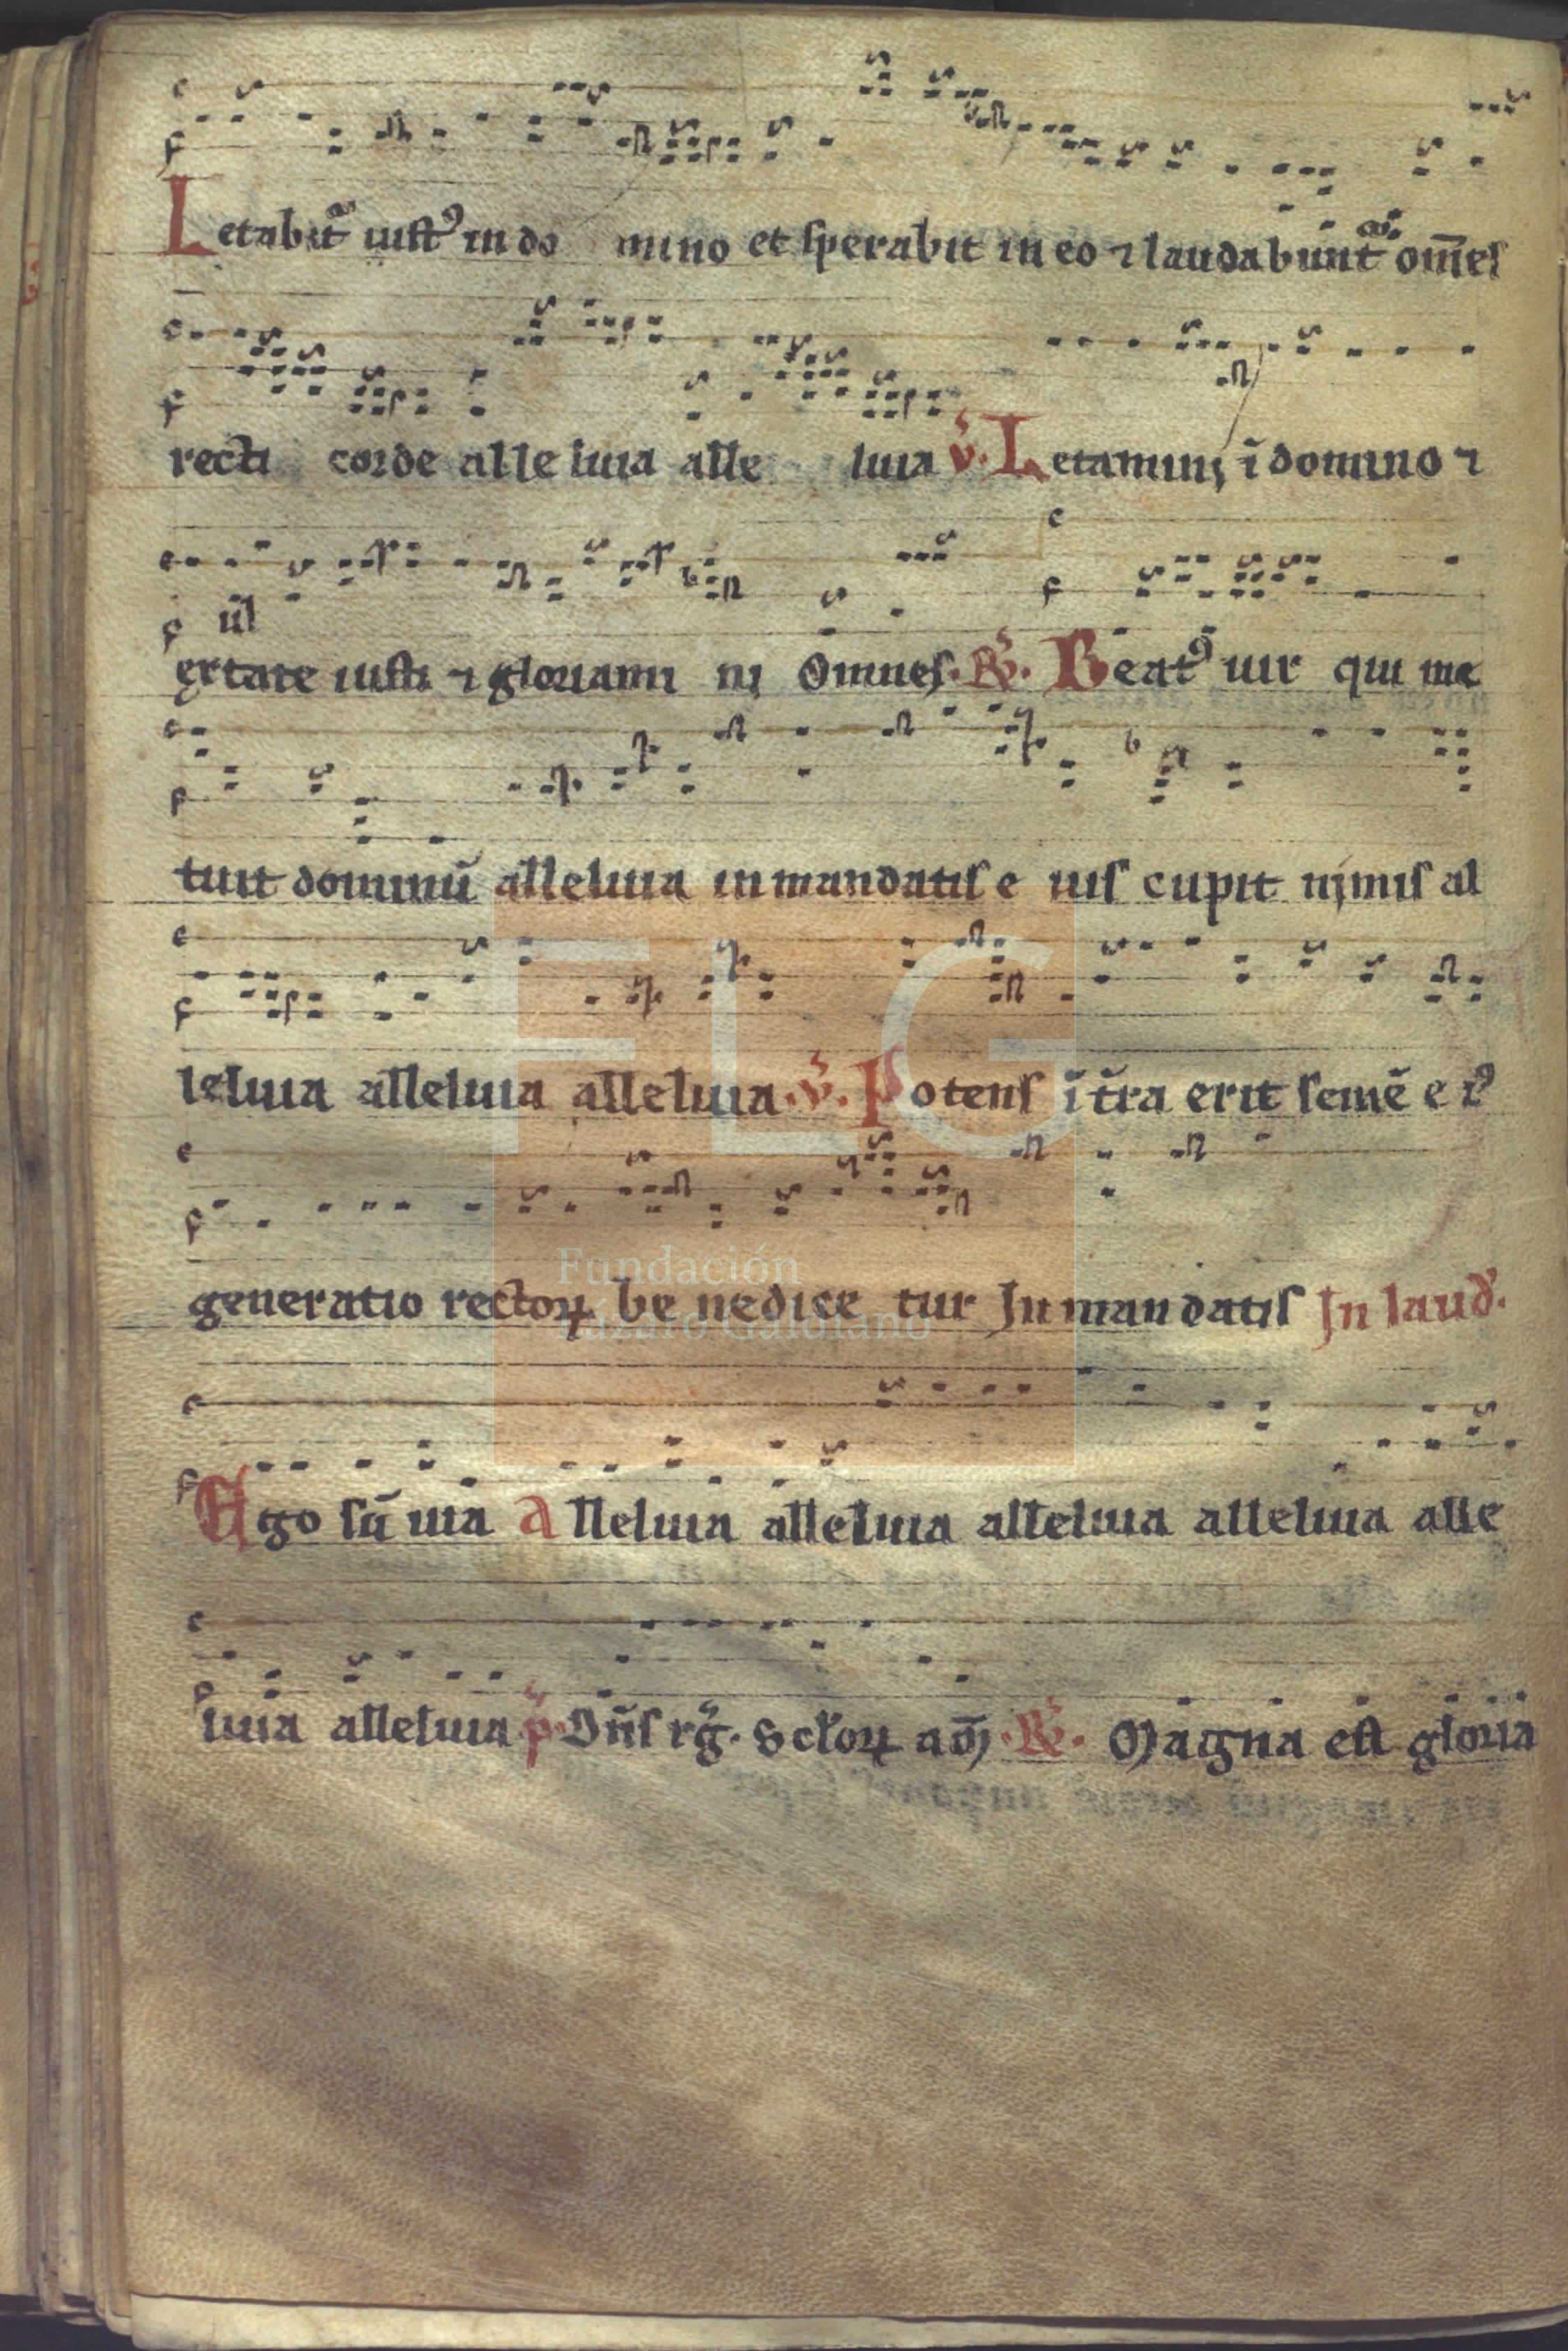 Letabit᷑ iustꝰ in do mino et sperabit in eo ⁊ laudabunt᷑ om̅es
recti corde alleluia alle luia v̓. Letamini i̅ domino ⁊
ul̅
exrtate iusti ⁊ gloriami ni Omnes. R̓. Beatꝰ uir qui me
tuit dominu̅ alleluia in mandatis e ius cupit nimis al
leluia alleluia alleluia. v̓. Potens i̅ t̅ra erit seme̅ eiꝰ
generatio rectoꝝ be nedice tur In mandatis In laud̓.
Ego su̅ uia Alleluia alleluia alleluia alleluia alle
luia alleluia p̓. Dn̅s rg̅. R̓. Magna est gloria
FLG
Fundación
Lázaro Galdiano